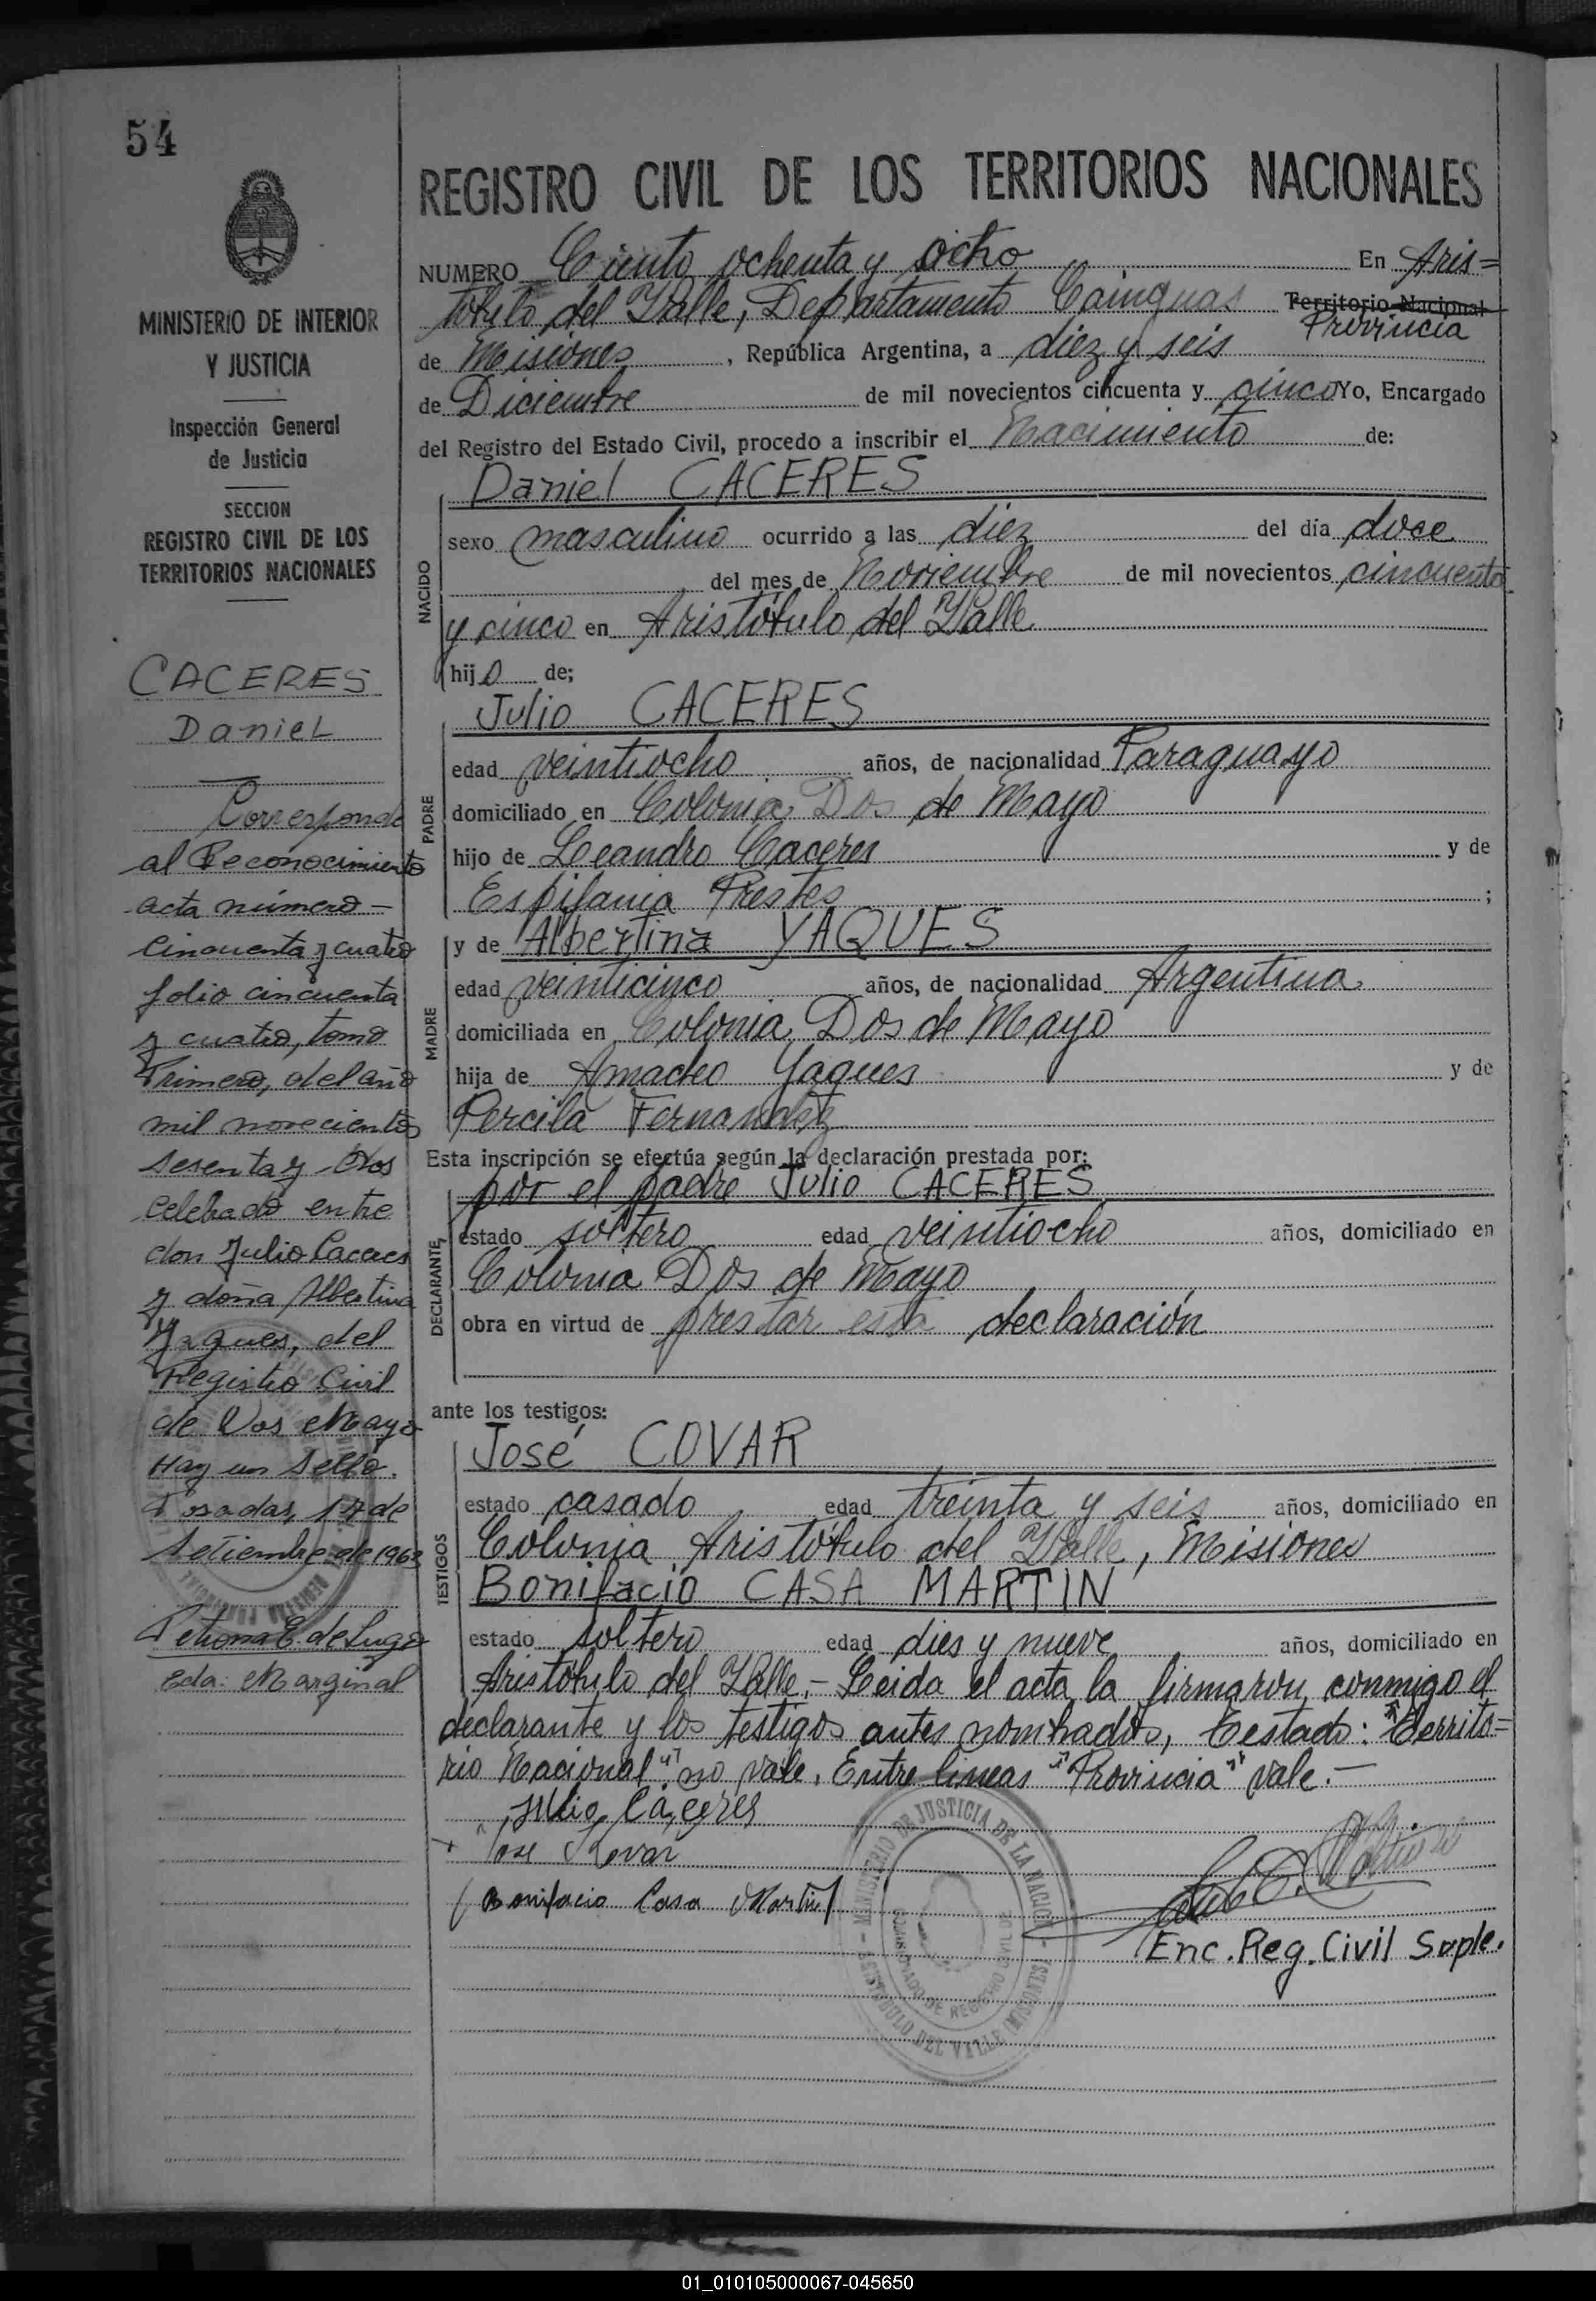 54
MINISTERIO DE INTERIOR
Y JUSTICIA
Inspección General
de Justicia
SECCION
REGISTRO CIVIL DE LOS
TERRITORIOS NACIONALES
CACERES
Daniel
Corresponde
al Reconocimiento
acta número
cincuenta y cuatro
folio cincuenta
y cuatro, tomo
Primero, del año
mil novecientos
sesenta y dos
celebrado entre
don Julio Caceres
y doña Albertina
Yaques, del
Registro Civil
de Dos Mayo
Hay un Sello.
Posadas, 17 de
Setiembre de 1963
Petrona E. de Lugo
Eda. Marginal
REGISTRO CIVIL DE LOS TERRITORIOS NACIONALES
NUMERO Ciento ochenta y ocho En Aris=
tótulo del Valle, Departamento Cainguas Territorio Nacional
Provincia
de Misiones, República Argentina, a diez y seis
de Diciembre de mil novecientos cincuenta y cinco Yo, Encargado
del Registro del Estado Civil, procedo a inscribir el Nacimiento de:
Daniel CACERES
NACIDO
sexo masculino ocurrido a las diez del día doce
del mes de Noviembre de mil novecientos cincuenta
y cinco en Aristótulo del Valle
hijo de;
Julio CACERES
PADRE
edad veintiocho años, de nacionalidad Paraguayo
domiciliado en Colonia Dos de Mayo
hijo de Leandro Caceres y de
Espifania Prestes ;
y de Albertina YAQUES
MADRE
edad veinticinco años, de nacionalidad Argentina
domiciliada en Colonia Dos de Mayo
hija de Amadeo Yaques y de
Percila Fernandez
Esta inscripción se efectúa según la declaración prestada por:
por el padre Julio CACERES
DECLARANTE
estado soltero edad veintiocho años, domiciliado en
Colonia Dos de Mayo
obra en virtud de prestar esta declaración
ante los testigos:
José COVAR
TESTIGOS
estado casado edad treinta y seis años, domiciliado en
Colonia Aristótulo del Valle, Misiones
Bonifacio CASA MARTIN
estado soltero edad dies y nueve años, domiciliado en
Aristótulo del Valle,- Leida el acta la firmaron conmigo el
declarante y los testigos antes nombrados, Testado: "Territo=
rio Nacional". no vale. Entre lineas "Provincia" vale.-
Julio Caceres
Jose Kovar
Bonifacio Casa Martin
MINISTERIO DE JUSTICIA DE LA NACION
REGISTRO CIVIL DE
ARISTOBULO DEL VALLE (MISIONES)
Enc. Reg. Civil Suple.
01_010105000067-045650